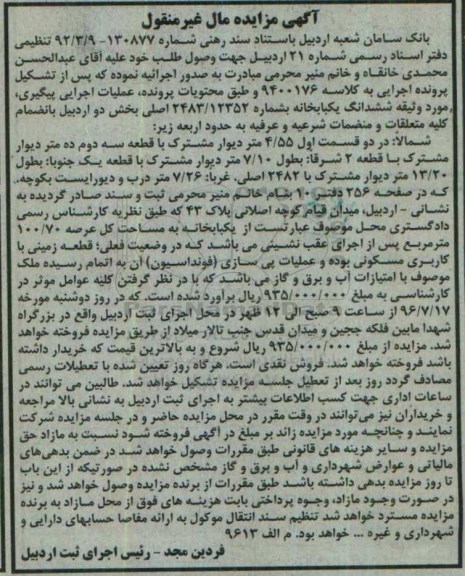 آگهی مزایده مال غیرمنقول
بانک سامان شعبه اردبیل باستناد سند رهنی شماره ۱۳۰۸۷۷- ۹۲/۳/۹ تنظیمی
دفتر اسناد رسمی شماره ۲۱ اردبیل جهت وصول طلب خود علیه آقای عبدالحسن
محمدی خانقاه و خانم منیر محرمی مبادرت به صدور اجرائیه نموده که پس از تشکیل
پرونده اجرایی به کلاسه ۹۴۰۰۱۷۶ و طبق محتویات پرونده، عملیات اجرایی پیگیری،
مورد وثیقه ششدانگ یکبابخانه بشماره ۲۴۸۳/۱۲۳۵۲ اصلی بخش دو اردبیل بانضمام
کلیه متعلقات و منضمات شرعیه و عرفیه به حدود اربعه زیر:
شمالاً: در دو قسمت اول ۴/۵۵ متر دیوار مشترک با قطعه سه دوم ده متر دیوار
مشترک با قطعه ۲ شرقا: بطول ۷/۱۰ متر دیوار مشترک با قطعه یک جنوبا: بطول
۱۳/۲۰ متر دیوار مشترک با ۲۴۸۲ اصلی، غربا: ۷/۲۶ متر درب و دیواریست بکوچه.
که در صفحه ۲۵۶ دفتر ۱۰۰ بنام خانم منیر محرمی ثبت و سند صادر گردیده به
نشانی - اردبیل، میدان قیام کوچه اصلانی پلاک ۴۳ که طبق نظریه کارشناس رسمی
دادگستری محل موصوف عبارتست از یکبابخانه به مساحت کل عرصه ۱۰۰/۷۰
مترمربع پس از اجرای عقب نشینی می باشد که در وضعیت فعلی: قطعه زمینی با
کاربری مسکونی بوده و عملیات پی سازی (فونداسیون) آن به اتمام رسیده ملک
موصوف با امتیازات آب و برق و گاز می باشد که با در نظر گرفتن کلیه عوامل موثر در
کارشناسی به مبلغ ۹۳۵/۰۰۰/۰۰۰ ریال برآورد شده است. که در روز دوشنبه مورخه
۹۶/۷/۱۷ از ساعت ۹ صبح الی ۱۲ ظهر در محل اجرای ثبت اردبیل واقع در بزرگراه
شهدا مابین فلکه ججین و میدان قدس جنب تالار میلاد از طریق مزایده فروخته خواهد
شد. مزایده از مبلغ ۹۳۵/۰۰۰/۰۰۰ ریال شروع و به بالاترین قیمت که خریدار داشته
باشد فروخته خواهد شد. فروش نقدی است. هرگاه روز تعیین شده با تعطیلات رسمی
مصادف گردد روز بعد از تعطیل جلسه مزایده تشکیل خواهد شد. طالبین می توانند در
ساعات اداری جهت کسب اطلاعات بیشتر به اجرای ثبت اردبیل به نشانی بالا مراجعه
و خریداران نیز می‌توانند در وقت مقرر در محل مزایده حاضر و در جلسه مزایده شرکت
نمایند و چنانچه مورد مزایده زائد بر مبلغ در آگهی فروخته شود نسبت به مازاد حق
مزایده و سایر هزینه های قانونی طبق مقررات وصول خواهد شد در ضمن بدهی‌های
مالیاتی و عوارض شهرداری و آب و برق و گاز مشخص نشده در صورتیکه از این باب
تا روز مزایده بدهی داشته باشد طبق مقررات از برنده مزایده وصول خواهد شد و نیز
در صورت وجود مازاد، وجوه پرداختی بابت هزینه های فوق از محل مازاد به برنده
مزایده مسترد خواهد شد تنظیم سند انتقال موکول به ارائه مفاصا حسابهای دارایی و
شهرداری و غیره ... خواهد بود. م الف ۹۶۱۳
فردین مجد - رئیس اجرای ثبت اردبیل